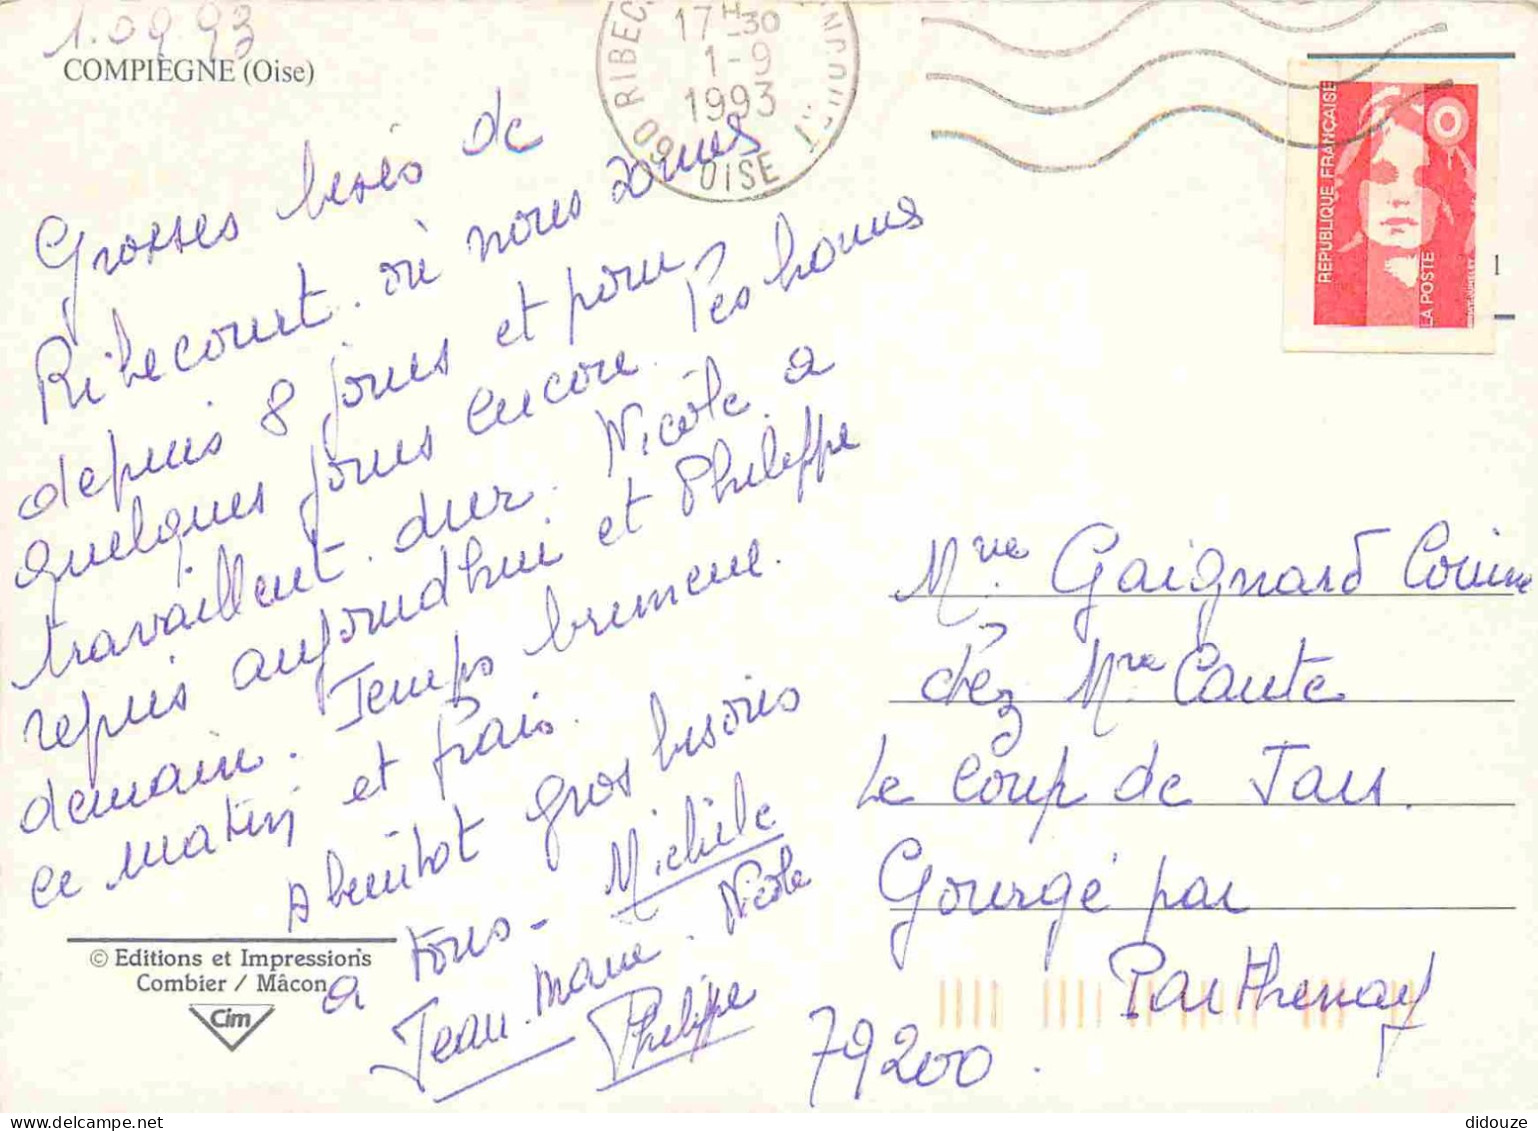 1.09.93
COMPIÈGNE (Oise)
Grosses bises de
Ribecourt. où nous sommes
depuis 8 jours et pour
quelques jours encore. Les hommes
travaillent. dur. Nicole. a
repris aujourdhui et Philippe
demain. Temps brumeux.
ce matin et frais.
A bientôt gros bisous
a tous - Michèle
Jean-Marie. Nicole
Philippe
© Editions et Impressions
Combier / Mâcon
Cim
60 RIBEC
17H30
1-9
1993
OISE
REPUBLIQUE FRANÇAISE
LA POSTE
1
Mme Gaignard
chez Mme Caute
Le Coup de Jau.
Gourgé par
Parthenay
79200.